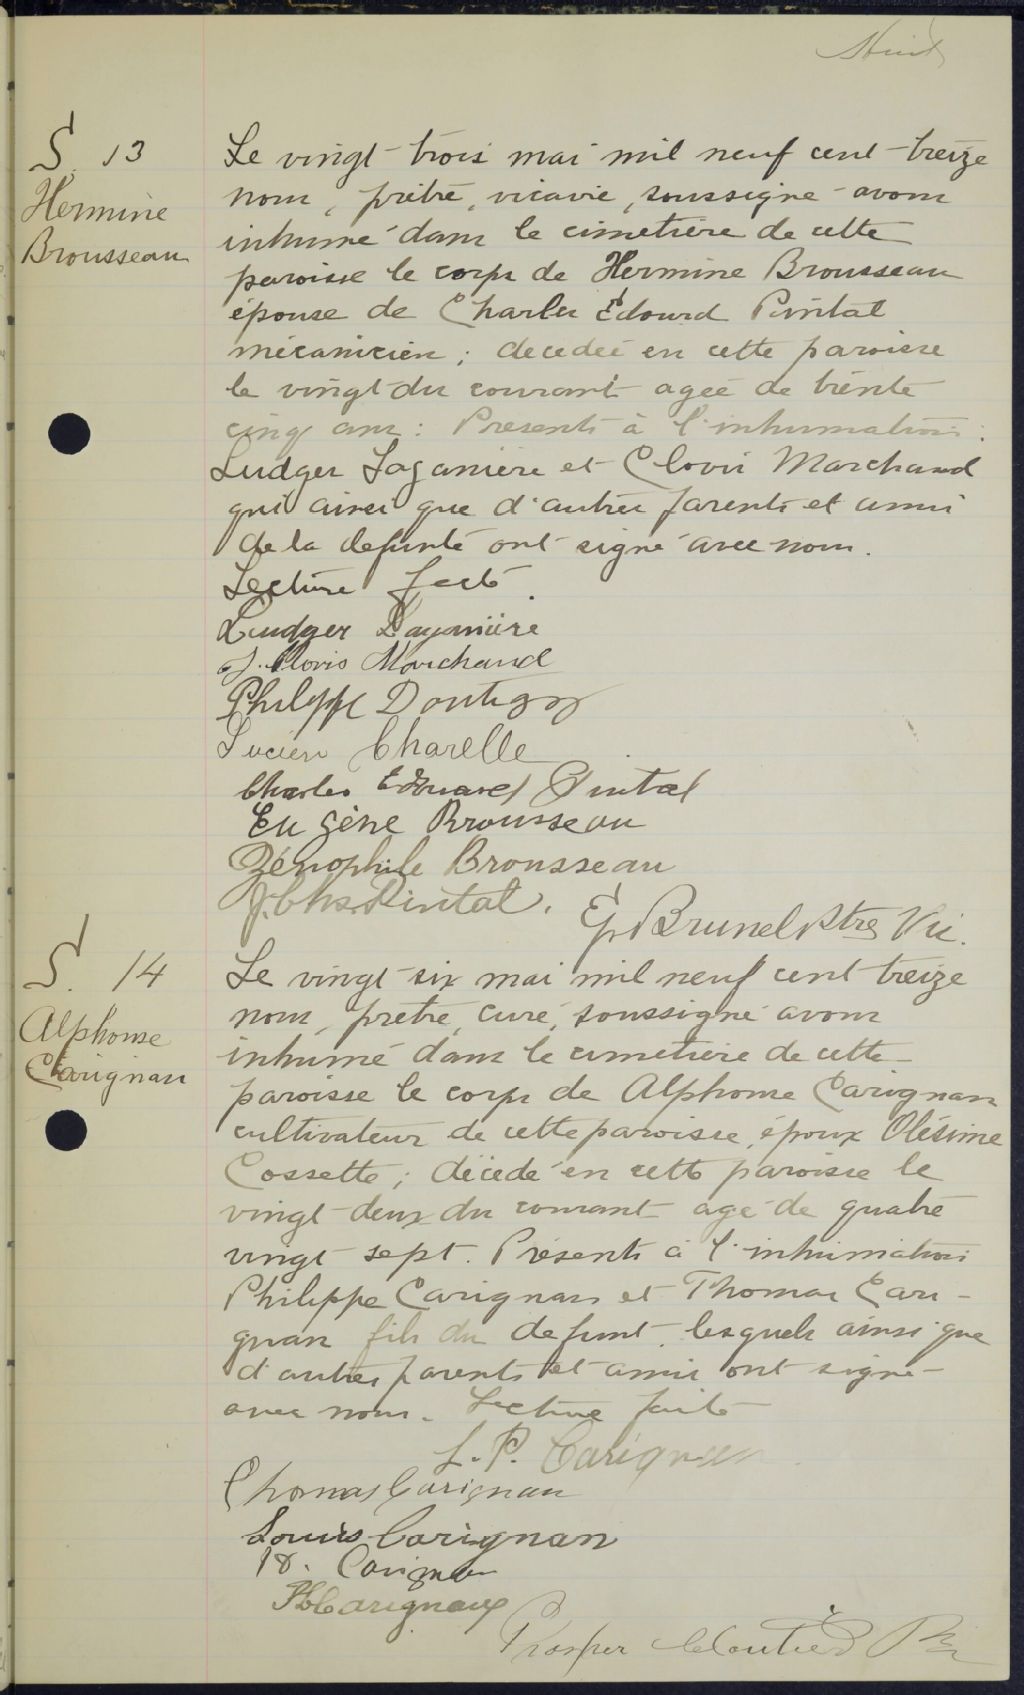 Huit
S. 13
Hermine
Brousseau
Le vingt-trois mai mil neuf cent-treize
nous, prêtre, vicaire, soussigné avons
inhumé dans le cimetière de cette
paroisse le corps de Hermine Brousseau
épouse de Charles Edouard Pintal
mécanicien; décédée en cette paroisse
le vingt du courant agée de trente
cinq ans: Présents à l'inhumation:
Ludger Laganière et Clovis Marchand
qui ainsi que d'autres parents et amis
de la défunte ont signé avec nous.
Lecture faite.
Ludger Laganière
J. Clovis Marchand
Philippe Dontigny
Lucien Charelle
Charles Edouard Pintal
Eugène Brousseau
Zénophile Brousseau
J. Chs. Pintal.
Ep. Brunel Ptre Vic.
S. 14
Alphonse
Carignan
Le vingt-six mai mil neuf cent treize
nous, prêtre, curé, soussigné avons
inhumé dans le cimetière de cette
paroisse le corps de Alphonse Carignan
cultivateur de cette paroisse, époux Olésime
Cossette; décédé en cette paroisse le
vingt-deux du courant agé de quatre
vingt sept. Présents à l'inhumation
Philippe Carignan et Thomas Cari-
gnan fils du défunt lesquels ainsi que
d'autres parents et amis ont signé
avec nous. Lecture faite
L. P. Carignan
Thomas Carignan
Louis Carignan
Carignan
Carignan
Prosper Cloutier Ptr